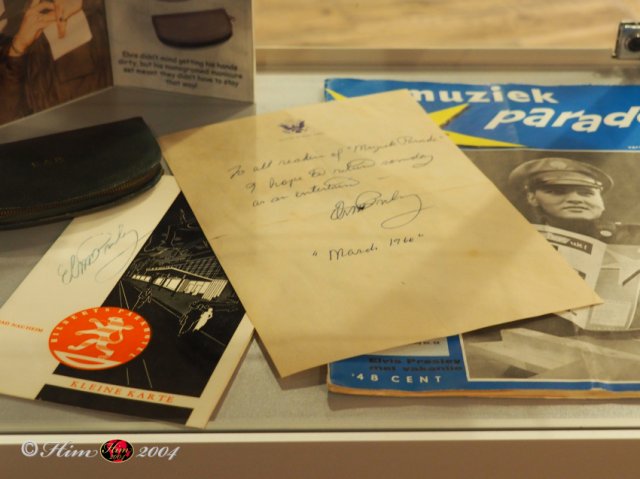 Elvis didn't mind getting his hands
dirty, but his monogrammed manicure
set meant they didn't have to stay
that way!
muziek
parade
To all readers of "Muziek Parade"
I hope to return someday
as an entertainer
Elvis Presley
"March 1960"
E.A.P.
Elvis Presley
BAD NAUHEIM
KLEINE KARTE
Elvis Presley
met vakantie
48 CENT
© Him Him 2004 2004